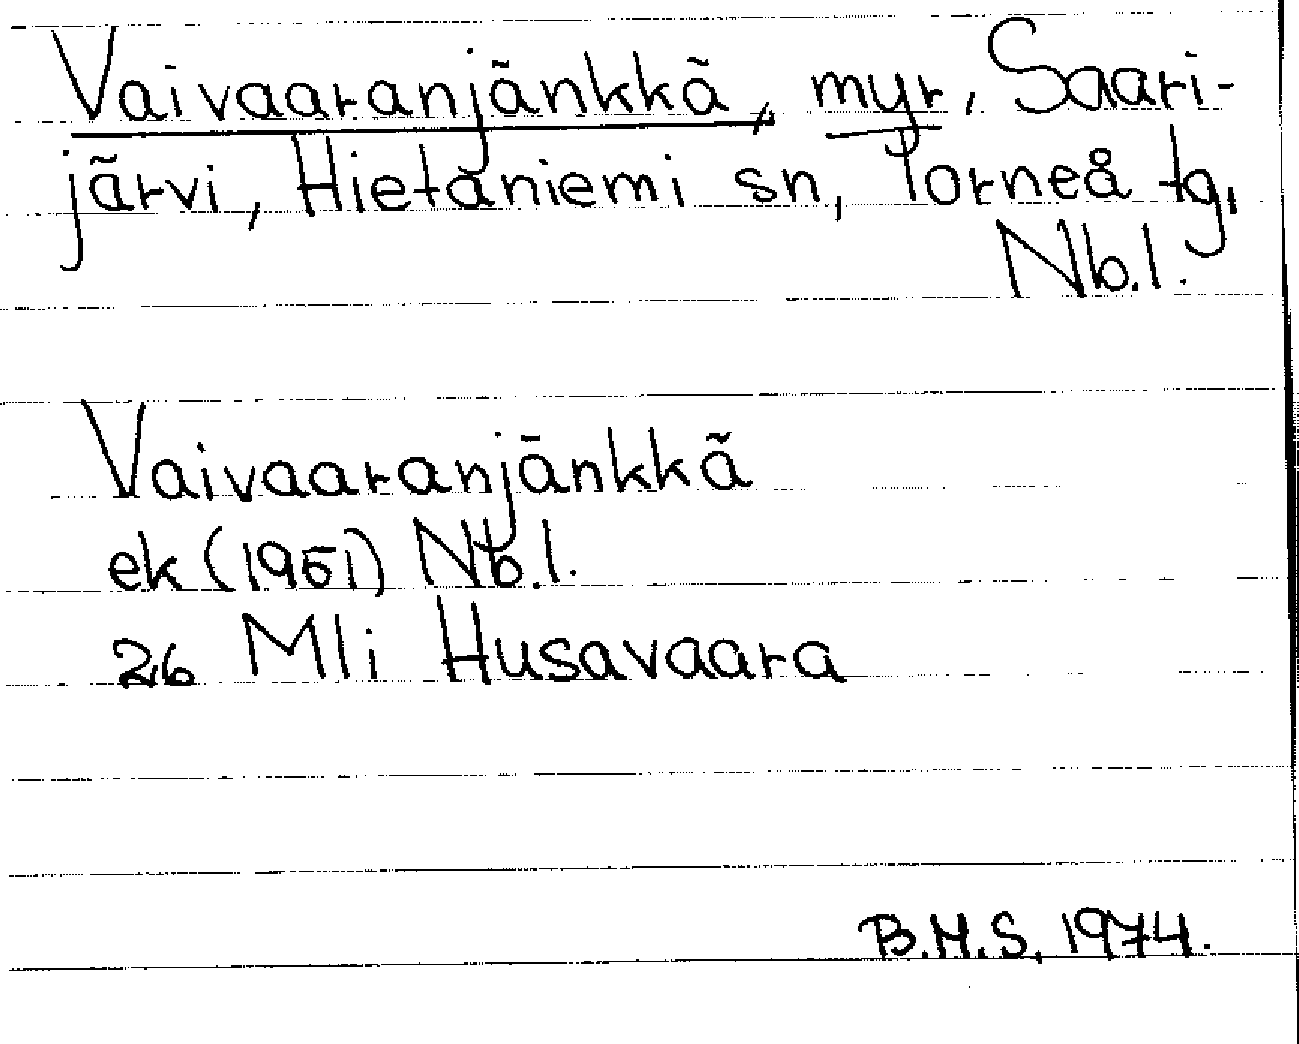 Vaivaaranjänkkä, myr, Saari-
järvi, Hietaniemi sn, Torneå tg,
Nb.l.
Vaivaaranjänkkä
ek (1961) Nb.l.
26 Mli Husavaara
B.H.S. 1974.